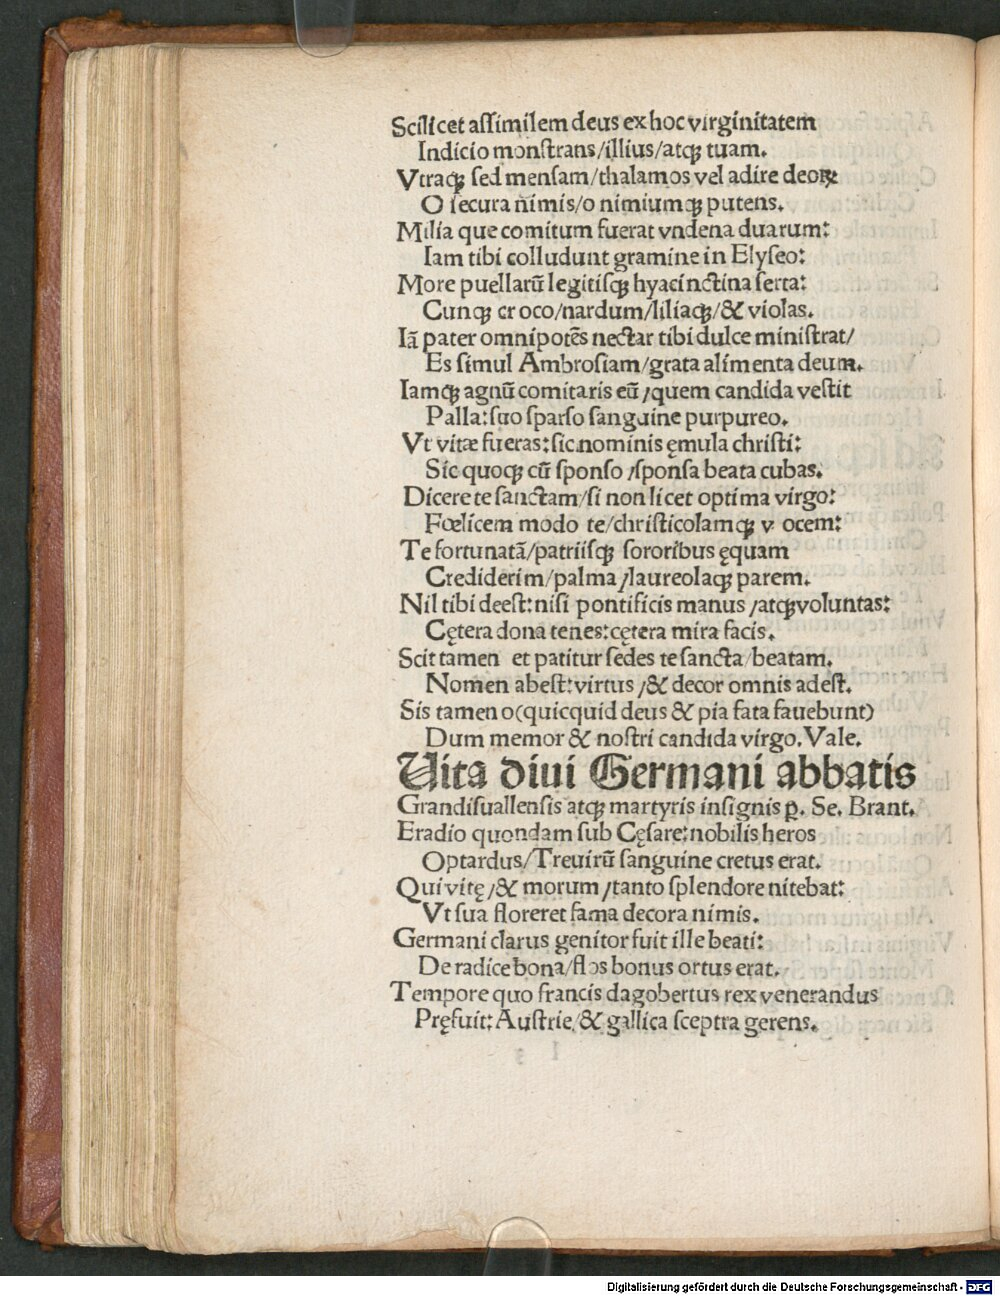 Scilicet assimilem deus ex hoc virginitatem
Indicio monstrans/illius/atqꝫ tuam.
Vtraqꝫ sed mensam/thalamos vel adire deoꝝ
O secura nimis/o nimiumqꝫ putens.
Milia que comitum fuerat vndena duarum:
Iam tibi colludunt gramine in Elyseo:
More puellarū legitisqꝫ hyacinctina serta:
Cunqꝫ croco/nardum/liliaqꝫ/& violas.
Iā pater omnipotēs nectar tibi dulce ministrat/
Es simul Ambrosiam/grata alimenta deum.
Iamqꝫ agnū comitaris eū/quem candida vestit
Palla:suo sparso sanguine purpureo.
Vt vitæ fueras:sic nominis ęmula christi:
Sic quoqꝫ cū sponso/sponsa beata cubas.
Dicere te sanctam/si non licet optima virgo:
Fœlicem modo te/christicolamqꝫ vocem:
Te fortunatā/patriisqꝫ sororibus ęquam
Crediderim/palma/laureolaqꝫ parem.
Nil tibi deest:nisi pontificis manus/atqꝫ voluntas:
Cętera dona tenes:cętera mira facis.
Scit tamen et patitur sedes te sancta/beatam.
Nomen abest:virtus/& decor omnis adest.
Sis tamen o(quicquid deus & pia fata fauebunt)
Dum memor & nostri candida virgo.Vale.
Vita diui Germani abbatis
Grandisuallensis atqꝫ martyris insignis ꝑ. Se. Brant.
Eradio quondam sub Cęsare:nobilis heros
Optardus/Treuirū sanguine cretus erat.
Qui vitę/& morum/tanto splendore nitebat:
Vt sua floreret fama decora nimis.
Germani clarus genitor fuit ille beati:
De radice bona/flos bonus ortus erat.
Tempore quo francis dagobertus rex venerandus
Pręfuit:Austrie/& gallica sceptra gerens.
Digitalisierung gefördert durch die Deutsche Forschungsgemeinschaft - DFG